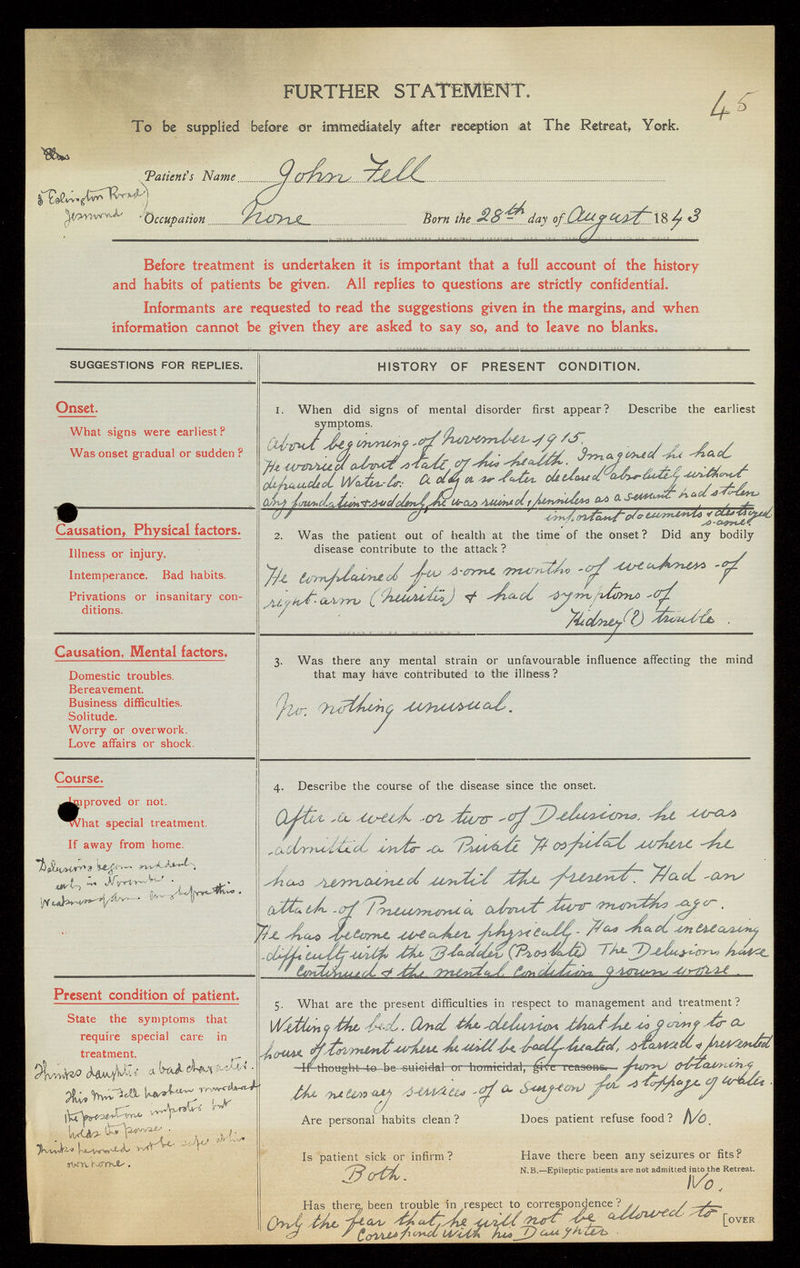 FURTHER STATEMENT.
45
To be supplied before or immediately after reception at The Retreat, York.
Patient's Name John Fell
8 Eslington Road
Jesmond
Occupation None Born the 28th day of August 1843
Before treatment is undertaken it is important that a full account of the history
and habits of patients be given. All replies to questions are strictly confidential.
Informants are requested to read the suggestions given in the margins, and when
information cannot be given they are asked to say so, and to leave no blanks.
SUGGESTIONS FOR REPLIES.
HISTORY OF PRESENT CONDITION.
Onset.
What signs were earliest?
Was onset gradual or sudden?
1. When did signs of mental disorder first appear? Describe the earliest
symptoms.
About beginning of November 1915.
He worried about state of his health. Imagined he had
defrauded Water Co: A day or so later declared absolutely without
any foundation & suddenly he was ruined, penniless as a servant had stolen
important documents & destroyed
same
Causation, Physical factors.
Illness or injury.
Intemperance. Bad habits.
Privations or insanitary con-
ditions.
2. Was the patient out of health at the time of the onset? Did any bodily
disease contribute to the attack?
He complained for some months of weakness of
right arm (neuritis) & had symptoms of
Kidney (?) trouble.
Causation, Mental factors.
Domestic troubles.
Bereavement.
Business difficulties.
Solitude.
Worry or overwork.
Love affairs or shock.
3. Was there any mental strain or unfavourable influence affecting the mind
that may have contributed to the illness?
No. nothing unusual.
Course.
Improved or not.
What special treatment.
If away from home.
Delusions began suddenly
early in November.
Weakness of arm before this.
4. Describe the course of the disease since the onset.
After a week or two of Delusions. he was
admitted into a Private Hospital where he
has remained until the present. Had an
attack of Pneumonia about two months ago.
He has become weaker physically. Has had increasing
difficulty with the Bladder (Prostate) The Delusions have
continued & the mental condition grown worse.
Present condition of patient.
State the symptoms that
require special care in
treatment.
Thinks daughter a bad character.
His Mrs Fell has been murdered
the present one but
holds the
Thinks he would not be safe in his
own home.
5. What are the present difficulties in respect to management and treatment?
Wetting the bed. And the delusion that he is going to a
house of torment where he will be badly treated, starved & prevented
If thought to be suicidal or homicidal, give reasons.
from obtaining
the necessary services of a Surgeon for stoppage of water.
Are personal habits clean? Does patient refuse food? No.
Is patient sick or infirm? Have there been any seizures or fits?
Both.
N.B.—Epileptic patients are not admitted into the Retreat.
No.
Has there been trouble in respect to correspondence?
Only the fear that he will not be allowed to
correspond with his Daughter.
[OVER